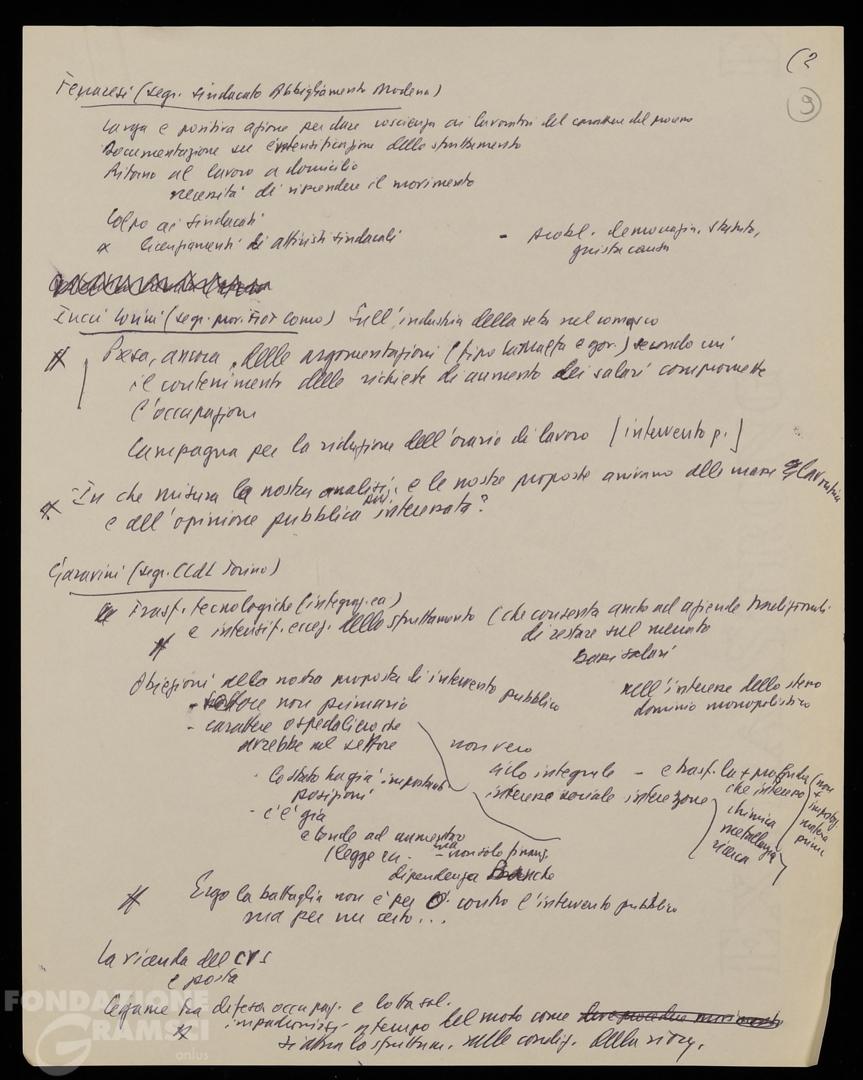 (2
9
Ferraresi (segr. sindacato Abbigliamento Modena)
larga e positiva azione per dare coscienza ai lavoratori del carattere del processo
Documentazione su intensificazione dello sfruttamento
Ritorno al lavoro a domicilio
necessità di riprendere il movimento
Colpo ai sindacati
x licenziamenti di attivisti sindacali - probl. democrazia, statuto,
giusta causa
(segr. prov. FIOT Como) Sull'industria della seta nel comasco
Presa, ancora, delle argomentazioni (tipo La Malfa e gov.) secondo cui
il contenimento delle richieste di aumento dei salari compromette
l'occupazione
Campagna per la riduzione dell'orario di lavoro [intervento p.]
In che misura la nostra analisi e le nostre proposte arrivano alle masse lavoratrici
e all'opinione pubblica più interessata?
Garavini (segr. CCdL Torino)
Trasf. tecnologiche (integraz. ca)
e intensif. eccez. dello sfruttamento (che consenta anche ad aziende tradizionali
di restare sul mercato
bassi salari
Obiezioni alla nostra proposta di intervento pubblico
nell'interesse dello stesso
dominio monopolistico
- settore non primario
- carattere ospedaliero che
avrebbe nel settore
non vero
ciclo integrale - e trasf. la + profonda
che interessa
lo stato ha già importanti
posizioni
interesse sociale
(non
+
import.
materie
prime
chimica
metallurgia
ricerca
- c'è già
e tende ad aumentare
(legge - non solo finanz.
dipendenza Banche
Ergo la battaglia non è per o contro l'intervento pubblico
ma per un certo...
La vicenda del CVS
e posta
legame tra difesa occupaz. e lotta sal.
a tempo del moto come
si attua lo sfruttam. nelle condiz. della riorg.
FONDAZIONE
GRAMSCI
onlus